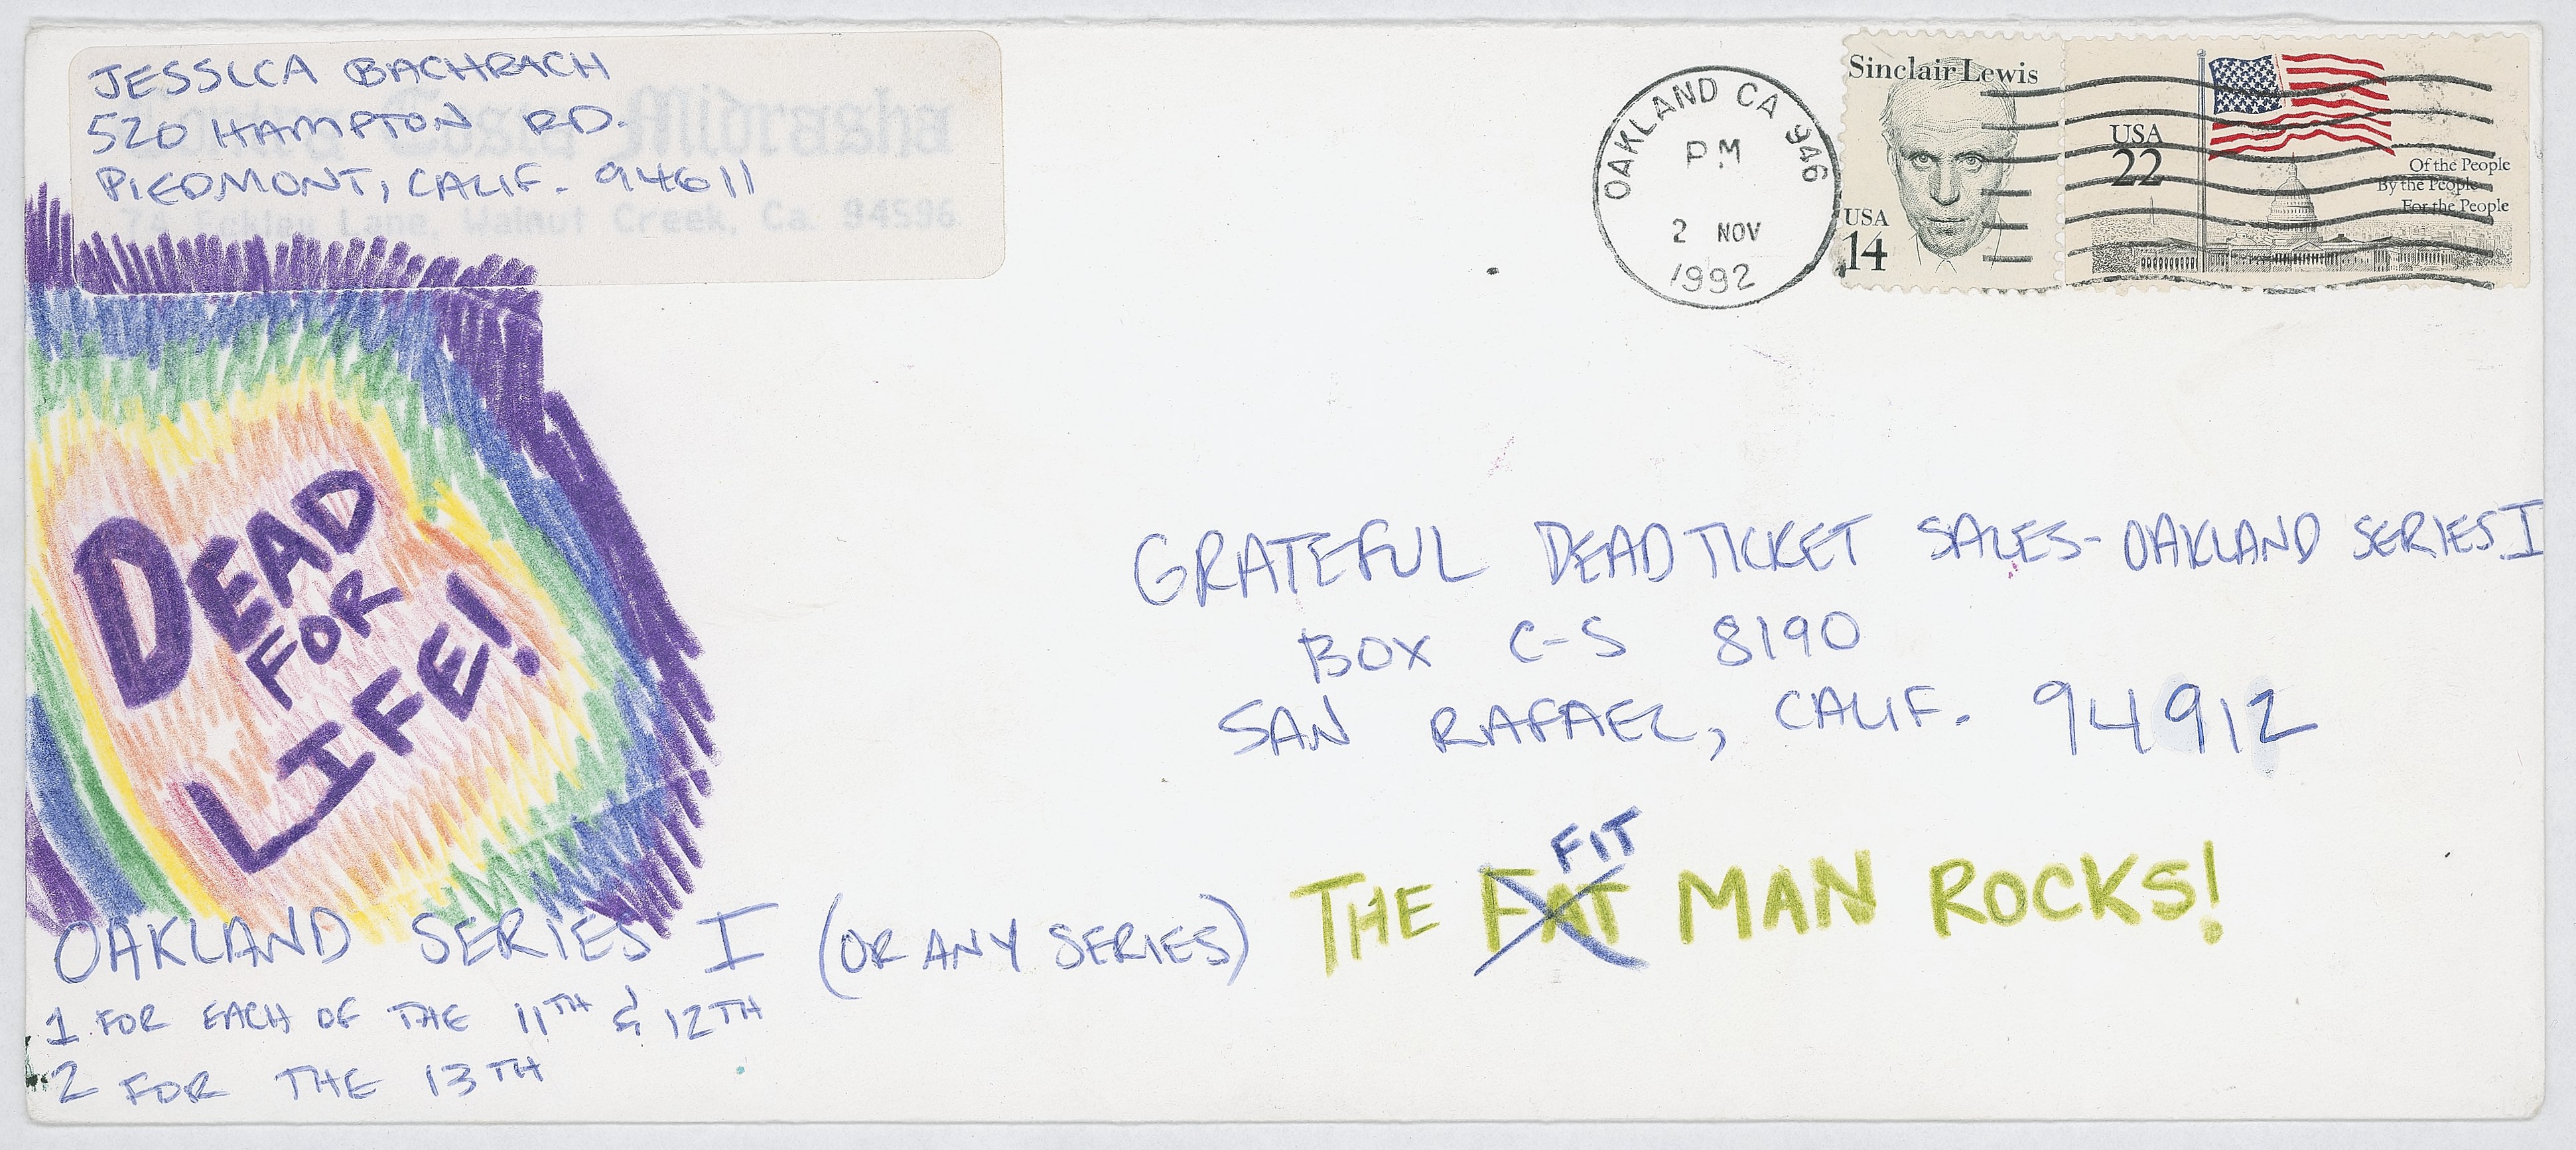 JESSICA BACHRACH
520 HAMPTON RD.
PIEDMONT, CALIF. 94611
Costa Midrasha
74 Eckley Lane, Walnut Creek, Ca. 94596
OAKLAND CA 946
PM
2 NOV
1992
Sinclair Lewis
USA
14
USA
22
Of the People
By the People
For the People
DEAD
FOR
LIFE!
GRATEFUL DEAD TICKET SALES - OAKLAND SERIES I
BOX C-S 8190
SAN RAFAEL, CALIF. 94912
FIT
THE FAT MAN ROCKS!
OAKLAND SERIES I (OR ANY SERIES)
1 FOR EACH OF THE 11TH & 12TH
2 FOR THE 13TH